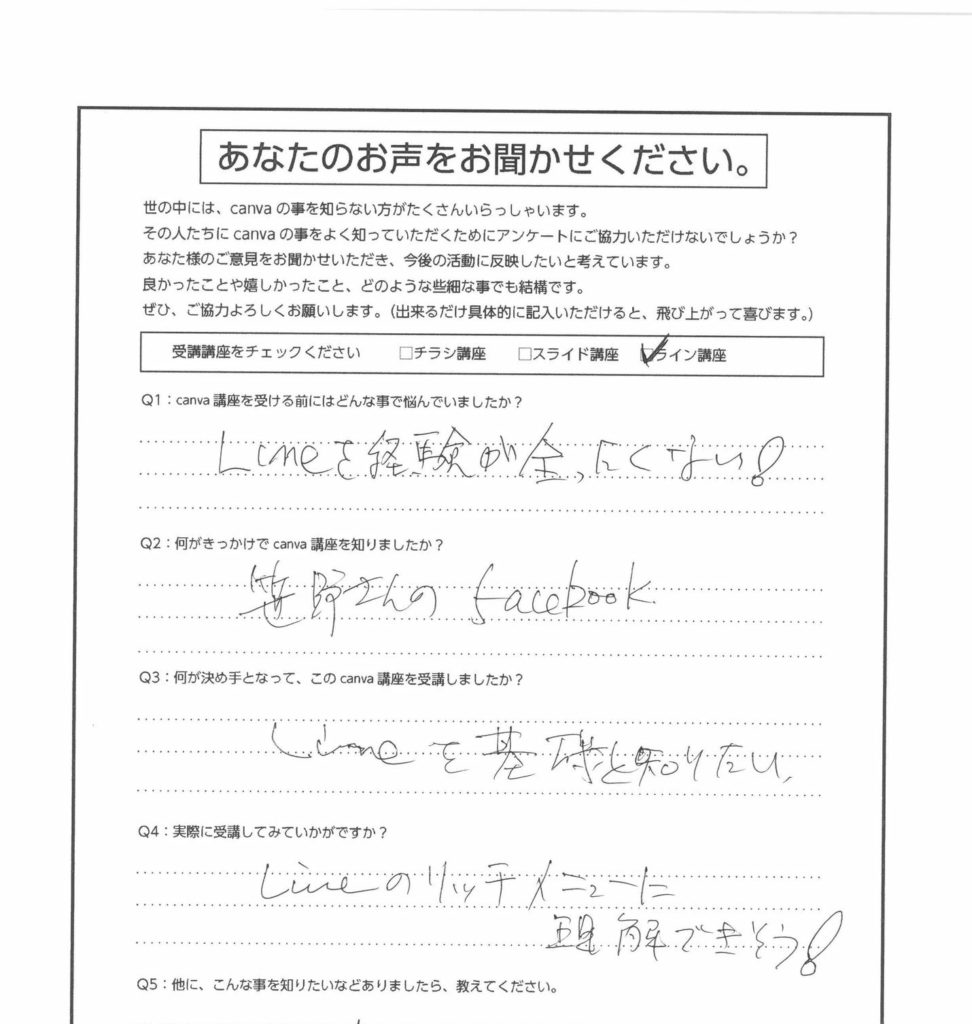 あなたのお声をお聞かせください。
世の中には、canvaの事を知らない方がたくさんいらっしゃいます。
その人たちにcanvaの事をよく知っていただくためにアンケートにご協力いただけないでしょうか？
あなた様のご意見をお聞かせいただき、今後の活動に反映したいと考えています。
良かったことや嬉しかったこと、どのような些細な事でも結構です。
ぜひ、ご協力よろしくお願いします。（出来るだけ具体的に記入いただけると、飛び上がって喜びます。）
受講講座をチェックください　□チラシ講座　□スライド講座　☑ライン講座
Q1：canva講座を受ける前にはどんな事で悩んでいましたか？
Lineを経験が全ったくない!
Q2：何がきっかけでcanva講座を知りましたか？
笹野さんの facebook
Q3：何が決め手となって、このcanva講座を受講しましたか？
Lineを基礎と知りたい、
Q4：実際に受講してみていかがですか？
Lineのリッチメニューに
理解できそう!
Q5：他に、こんな事を知りたいなどありましたら、教えてください。